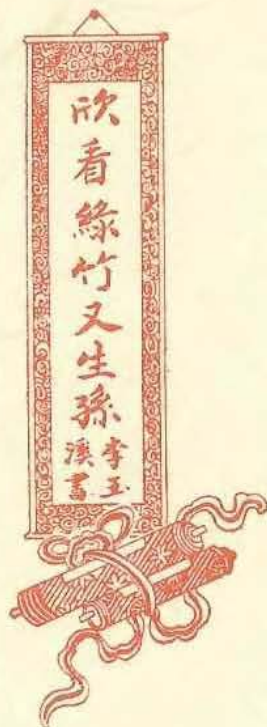 欣看綠竹又生孫
李玉
溪書